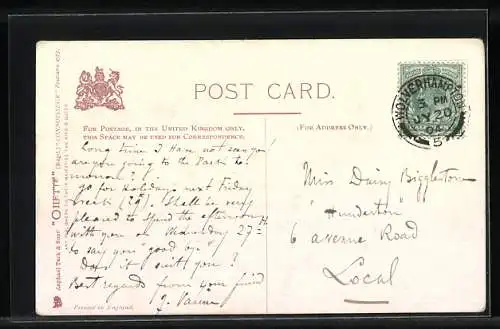 POST CARD.
FOR POSTAGE, IN THE UNITED KINGDOM ONLY,
THIS SPACE MAY BE USED FOR CORRESPONDENCE.
(FOR ADDRESS ONLY.)
Long time I have not seen you!
are you going to the Park to-
morrow?
I go for holidays next Friday
week (29). Shall be very
pleased to spend the afternoon
with you on Wednesday 27th
to say you "good bye"
Does it suit you?
Best regards from your friend
Miss Daisy Biggleston
"Hunderton"
6 avenue Road
Local
WOLVERHAMPTON
3 PM
JY 20
"OILETTE"
Raphael Tuck & Sons'
Printed in England.